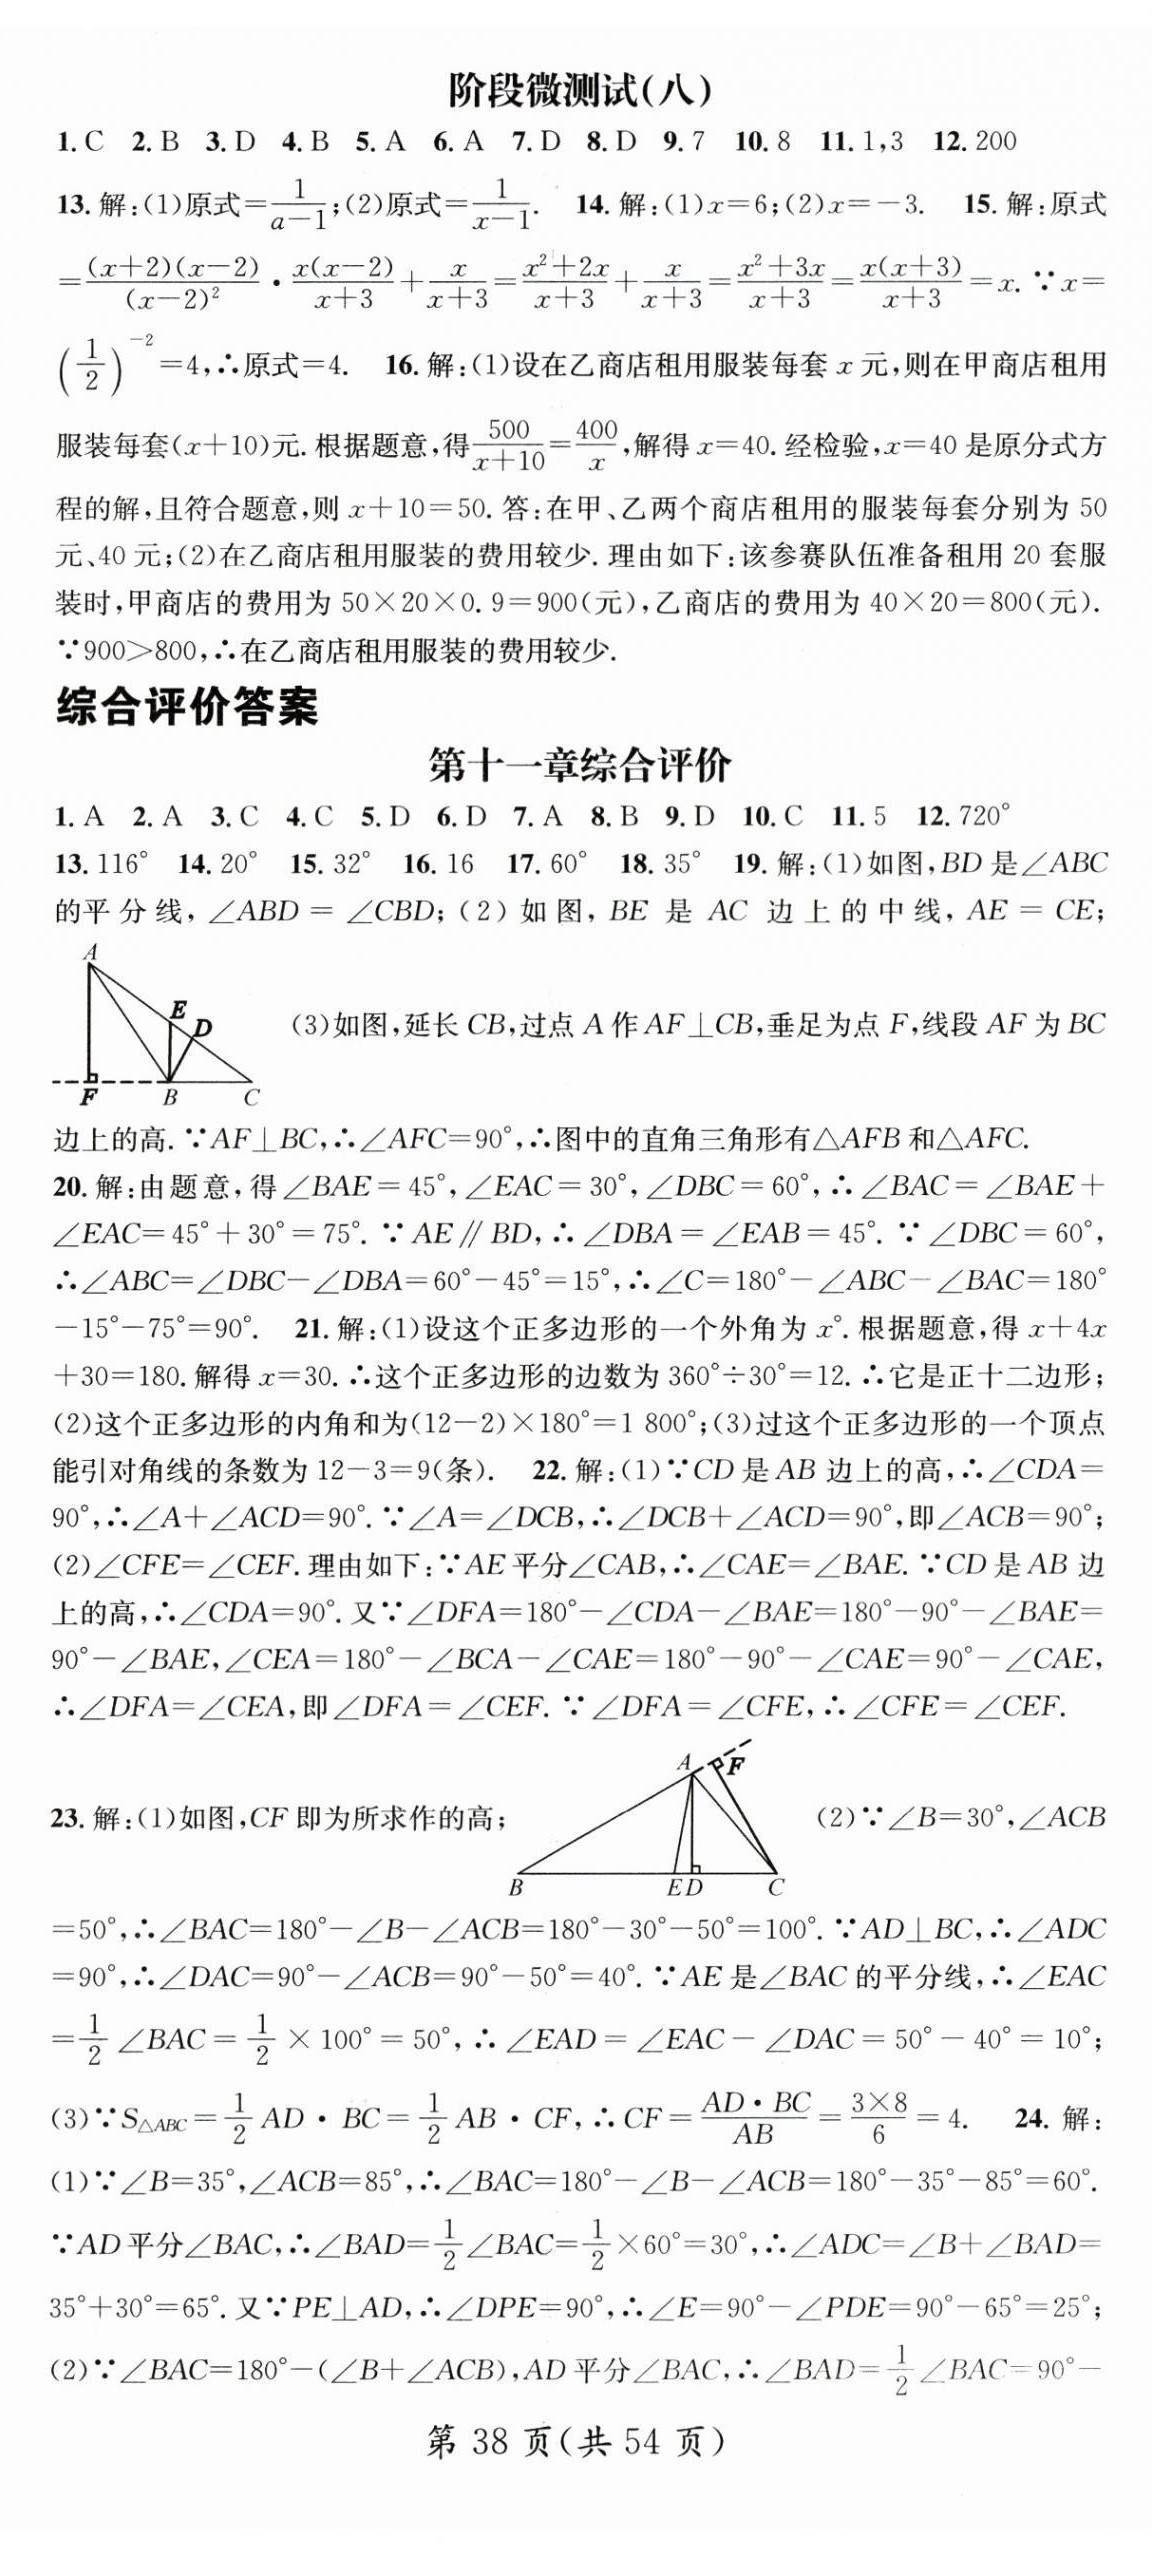 阶段微测试(八)
1. C 2. B 3. D 4. B 5. A 6. A 7. D 8. D 9. 7 10. 8 11. 1,3 12. 200
13. 解:(1)原式=1/(a-1);(2)原式=1/(x-1). 14. 解:(1)x=6;(2)x=-3. 15. 解:原式
=(x+2)(x-2)/(x-2)²·x(x-2)/(x+3)+x/(x+3)=(x²+2x)/(x+3)+x/(x+3)=(x²+3x)/(x+3)=x(x+3)/(x+3)=x. ∵x=
(1/2)⁻²=4,∴原式=4. 16. 解:(1)设在乙商店租用服装每套 x 元,则在甲商店租用
服装每套(x+10)元. 根据题意,得500/(x+10)=400/x,解得 x=40. 经检验,x=40 是原分式方
程的解,且符合题意,则 x+10=50. 答:在甲、乙两个商店租用的服装每套分别为 50
元、40 元;(2)在乙商店租用服装的费用较少. 理由如下:该参赛队伍准备租用 20 套服
装时,甲商店的费用为 50×20×0.9=900(元),乙商店的费用为 40×20=800(元).
∵900>800,∴在乙商店租用服装的费用较少.
综合评价答案
第十一章综合评价
1. A 2. A 3. C 4. C 5. D 6. D 7. A 8. B 9. D 10. C 11. 5 12. 720°
13. 116° 14. 20° 15. 32° 16. 16 17. 60° 18. 35° 19. 解:(1)如图,BD 是∠ABC
的平分线,∠ABD=∠CBD;(2)如图,BE 是 AC 边上的中线,AE=CE;
A
E
D
F B C
(3)如图,延长 CB,过点 A 作 AF⊥CB,垂足为点 F,线段 AF 为 BC
边上的高. ∵AF⊥BC,∴∠AFC=90°,∴图中的直角三角形有△AFB 和△AFC.
20. 解:由题意,得∠BAE=45°,∠EAC=30°,∠DBC=60°,∴∠BAC=∠BAE+
∠EAC=45°+30°=75°. ∵AE∥BD,∴∠DBA=∠EAB=45°. ∵∠DBC=60°,
∴∠ABC=∠DBC-∠DBA=60°-45°=15°,∴∠C=180°-∠ABC-∠BAC=180°
-15°-75°=90°. 21. 解:(1)设这个正多边形的一个外角为 x°. 根据题意,得 x+4x
+30=180. 解得 x=30. ∴这个正多边形的边数为 360°÷30°=12. ∴它是正十二边形;
(2)这个正多边形的内角和为(12-2)×180°=1 800°;(3)过这个正多边形的一个顶点
能引对角线的条数为 12-3=9(条). 22. 解:(1)∵CD 是 AB 边上的高,∴∠CDA=
90°,∴∠A+∠ACD=90°. ∵∠A=∠DCB,∴∠DCB+∠ACD=90°,即∠ACB=90°;
(2)∠CFE=∠CEF. 理由如下:∵AE 平分∠CAB,∴∠CAE=∠BAE. ∵CD 是 AB 边
上的高,∴∠CDA=90°. 又∵∠DFA=180°-∠CDA-∠BAE=180°-90°-∠BAE=
90°-∠BAE,∠CEA=180°-∠BCA-∠CAE=180°-90°-∠CAE=90°-∠CAE,
∴∠DFA=∠CEA,即∠DFA=∠CEF. ∵∠DFA=∠CFE,∴∠CFE=∠CEF.
23. 解:(1)如图,CF 即为所求作的高;
A F
B E D C
(2)∵∠B=30°,∠ACB
=50°,∴∠BAC=180°-∠B-∠ACB=180°-30°-50°=100°. ∵AD⊥BC,∴∠ADC
=90°,∴∠DAC=90°-∠ACB=90°-50°=40°. ∵AE 是∠BAC 的平分线,∴∠EAC
=1/2∠BAC=1/2×100°=50°,∴∠EAD=∠EAC-∠DAC=50°-40°=10°;
(3)∵S△ABC=1/2AD·BC=1/2AB·CF,∴CF=AD·BC/AB=3×8/6=4. 24. 解:
(1)∵∠B=35°,∠ACB=85°,∴∠BAC=180°-∠B-∠ACB=180°-35°-85°=60°.
∵AD 平分∠BAC,∴∠BAD=1/2∠BAC=1/2×60°=30°,∴∠ADC=∠B+∠BAD=
35°+30°=65°. 又∵PE⊥AD,∴∠DPE=90°,∴∠E=90°-∠PDE=90°-65°=25°;
(2)∵∠BAC=180°-(∠B+∠ACB),AD 平分∠BAC,∴∠BAD=1/2∠BAC=90°-
第 38 页(共 54 页)